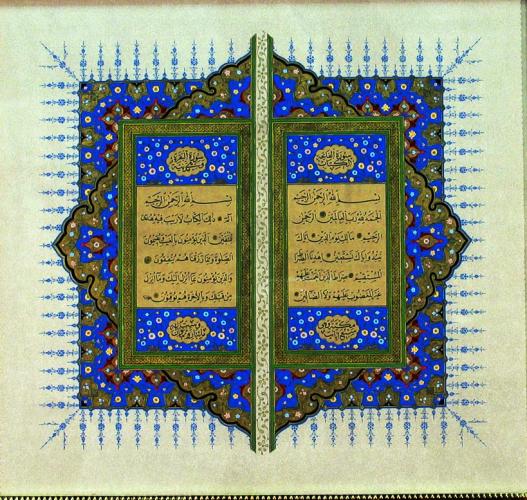 سورة الفاتحة
الكتاب
بسم الله الرحمن الرحيم
الحمد لله رب العالمين الرحمن
الرحيم مالك يوم الدين اياك
نعبد واياك نستعين اهدنا الصراط
المستقيم صراط الذين انعمت عليهم
غير المغضوب عليهم ولا الضالين
سورة البقرة
بسم الله الرحمن الرحيم
الم ذلك الكتاب لا ريب فيه هدى
للمتقين الذين يؤمنون بالغيب ويقيمون
الصلوة ومما رزقناهم ينفقون
والذين يؤمنون بما انزل اليك وما انزل
من قبلك وبالاخرة هم يوقنون